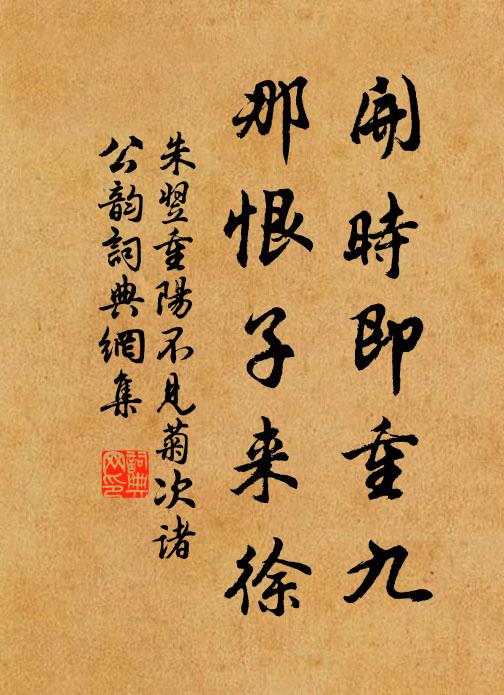 開時即重九
那恨子来徐
朱翌重陽不見菊次諸
公韵詞典網集
詞典
网印